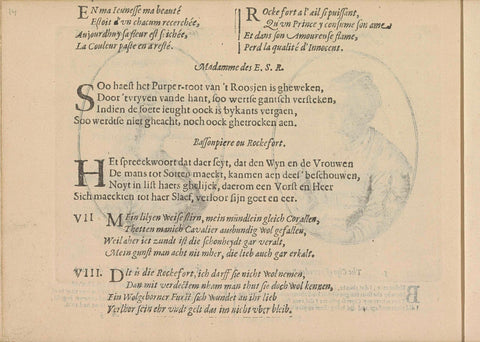 EN ma Ieunesse ma beauté
Estois d'vn chacum recerchée,
Auiourdhuy sa fleur est sichée,
La Couleur passe en arresté.
Rockefort a l'ail si puissant,
Qu'vn Prince y consume son ame
Et dans son Amoureuse flame,
Perd la qualité d'Innocent.
Madamme des E. S. R.
SOo haest het Purper-root van 't Roosjen is gheweken,
Door 't vryven vande hant, soo wertse gantsch versteken,
Indien de soete ieught oock is bykants vergaen,
Soo werdtse niet gheacht, noch oock ghetrocken aen.
Bassonpiere ou Rockefort.
HEt spreeckwoort dat daer seyt, dat den Wyn en de Vrouwen
De mans tot Sotten maeckt, kanmen aen dees' beschouwen,
Noyt in list haers ghelijck, daerom een Vorst en Heer
Sich maeckten tot haer Slaef, verloor sijn goet en eer.
VII MEin lilyen Weisse stirn, mein mündlein gleich Corallen,
Thetten manich Cavalier ausbundig wol gefallen,
Weil aber ietzundt ist die schonheydt gar veralt,
Mein gunst man acht nit mher, die lieb auch gar erkalt.
VIII. Dit is die Rockefort, ich darff sie nicht wol nemen,
Dan mit verdecktem nham man thut sie doch wol kennen,
Ein Wolgeborner Furst sich wundet an ihr lieb
Verlhor sein ehr vndt gelt das im nicht vber bleib.